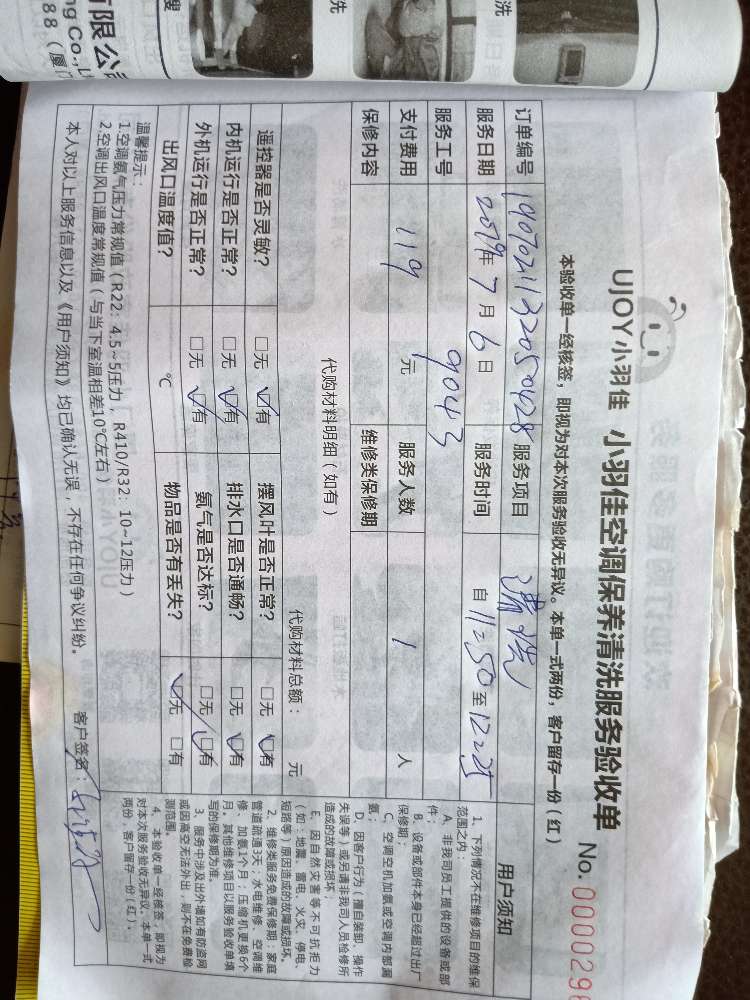 UJOY小羽佳 小羽佳空调保养清洗服务验收单 No. 0000298
本验收单一经核签，即视为对本次服务验收无异议。本单一式两份，客户留存一份（红）
订单编号 1907021132050428 服务项目 清洗
服务日期 2019年7月6日 服务时间 自11:50至12:25
服务工号 9043
支付费用 119 元 服务人数 1 人
保修内容 维修类保修期
代购材料明细（如有） 代购材料总额： 元
遥控器是否灵敏？ □无 ☑有 摆风叶是否正常？ □无 ☑有
内机运行是否正常？ □无 ☑有 排水口是否通畅？ □无 ☑有
外机运行是否正常？ □无 ☑有 氨气是否达标？ □无 ☑有
出风口温度值？ ℃ 物品是否有丢失？ ☑无 □有
温馨提示：
1.空调氨气压力常规值（R22：4.5~5压力，R410/R32：10~12压力）
2.空调出风口温度常规值（与当下室温相差10℃左右）
本人对以上服务信息以及《用户须知》均已确认无误，不存在任何争议纠纷。 客户签名：
用户须知
1、下列情况不在维修项目的维保
范围之内：
A、非我司员工提供的设备或部
件；
B、设备或部件本身已经超过出厂
保修期；
C、空调空机加氨或空调内部漏
氨；
D、因客户行为（擅自装卸、操作
失误等）或另请非我司人员检修所
造成的故障或损坏；
E、因自然灾害等不可抗拒力
（如：地震、雷电、火灾、停电、
短路等）原因造成的故障或损坏。
2、维修类服务免费保修期：家庭
管道疏通3天；水电维修、空调维
修、加氨1个月；压缩机更换6个
月。其他维修项目以服务验收单填
写的保修期为准。
3、服务中涉及出外墙如有防盗网
或因高空无法外出，则不在免费检
测范围。
4、本验收单一经核签，即视为
对本次服务验收无异议。本单一式
两份，客户留存一份（红）。
有限公
ng Co.,L
88（厦门
洗
洗